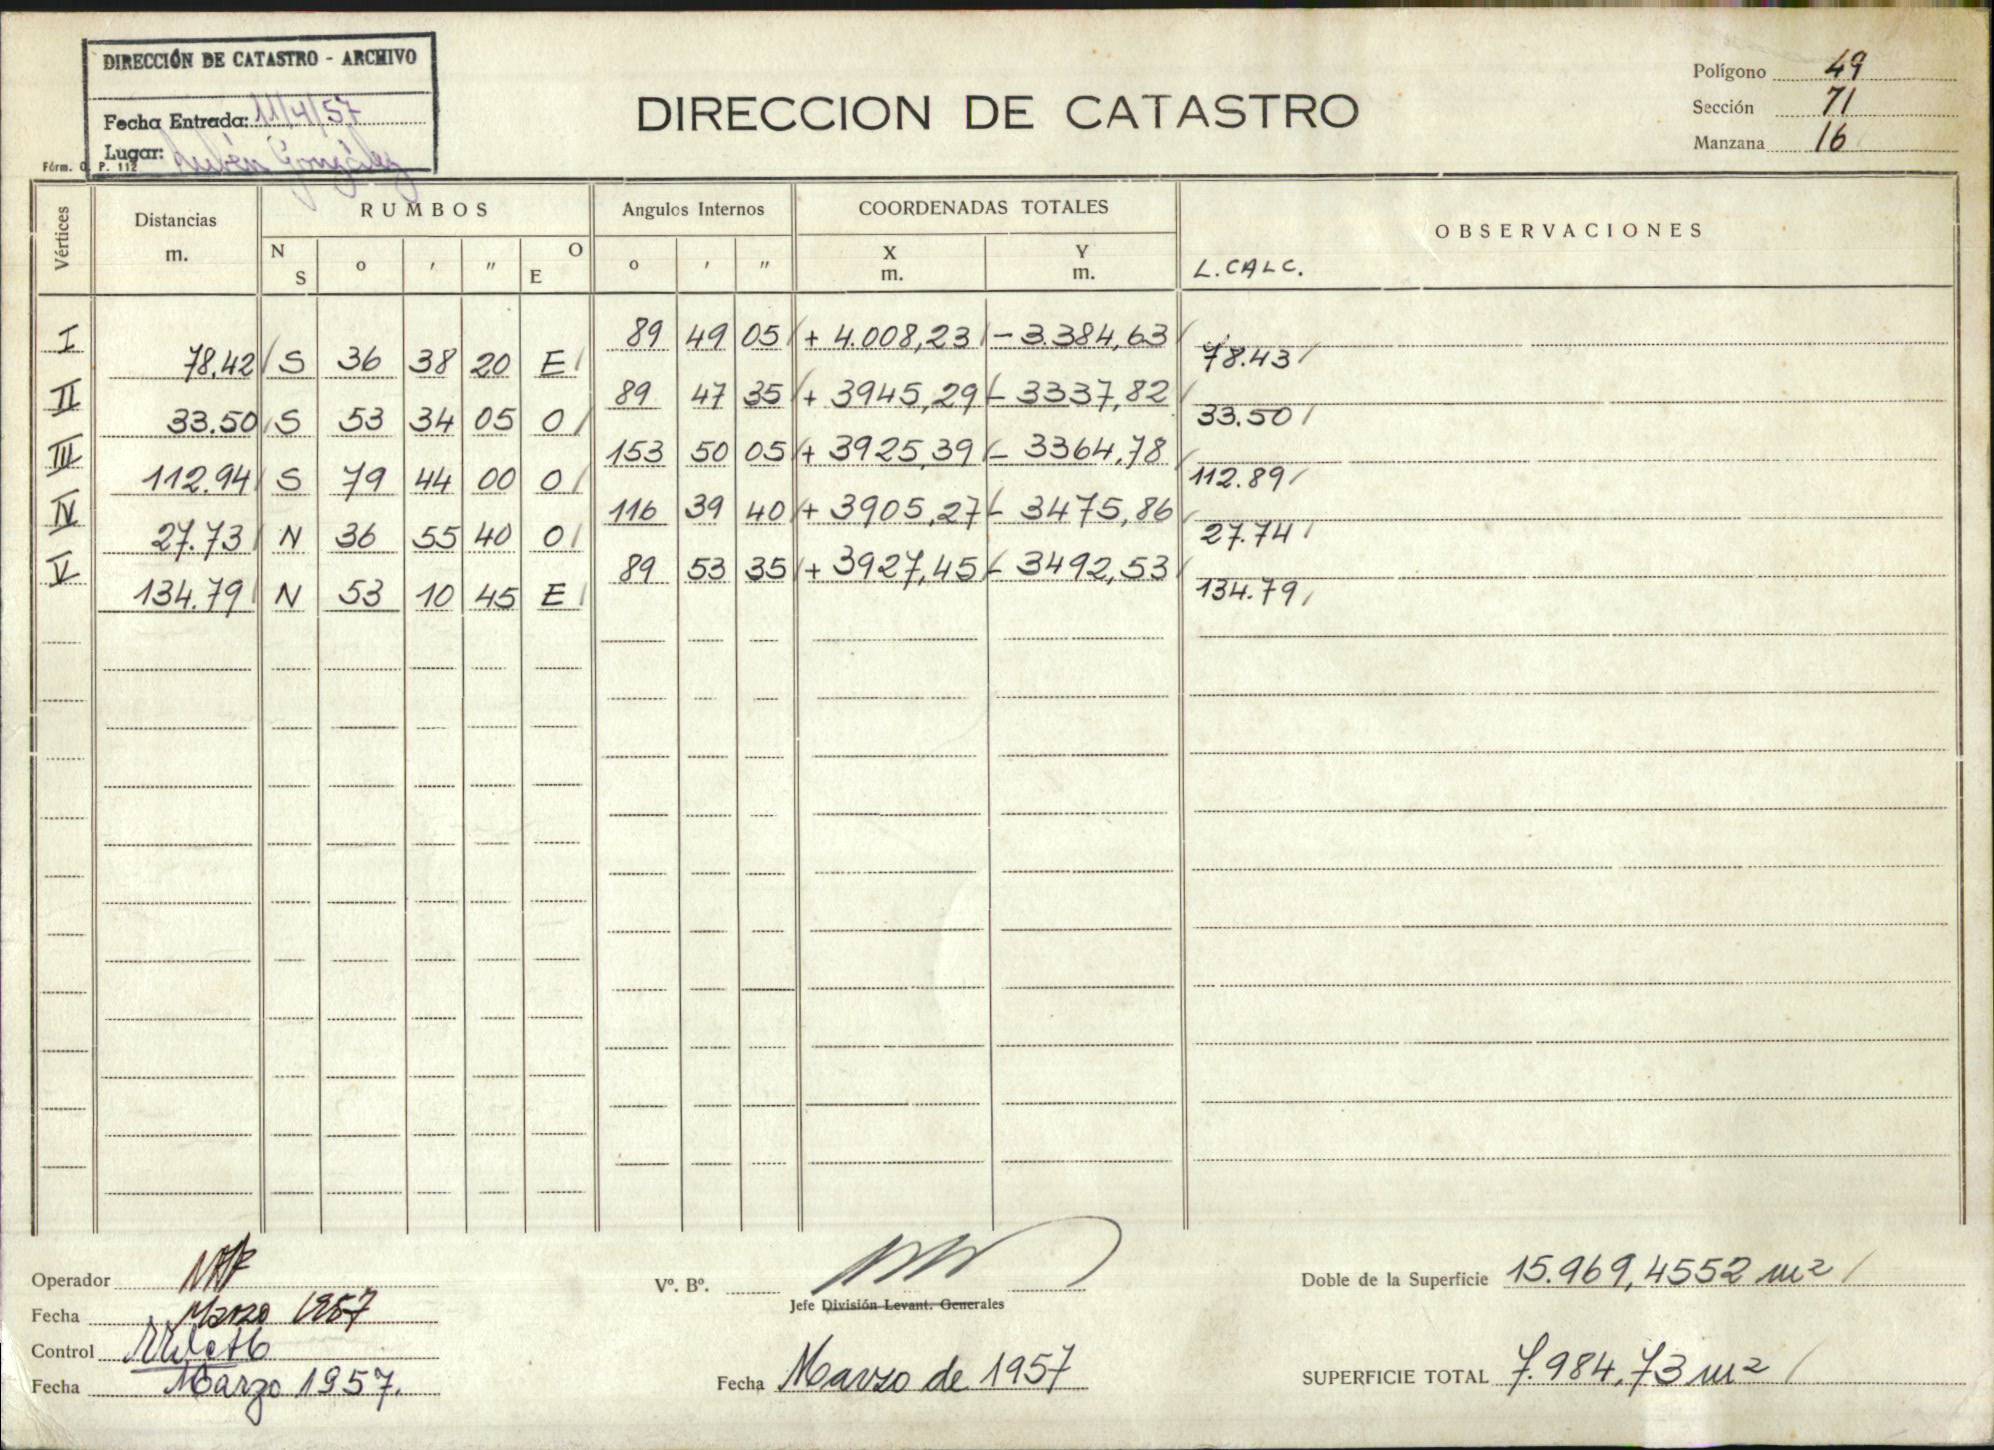 DIRECCIÓN DE CATASTRO - ARCHIVO
Fecha Entrada: 11/4/57
Lugar: Rubén González
Fórm. O. P. 112
DIRECCION DE CATASTRO
Polígono 49
Sección 71
Manzana 16
Vértices
Distancias
m.
RUMBOS
N
S
o
'
"
O
E
Angulos Internos
o ' "
COORDENADAS TOTALES
X
m.
Y
m.
OBSERVACIONES
L. CALC.
I 89 49 05 + 4.008,23 - 3.384,63
78.42 S 36 38 20 E 78.43
II 89 47 35 + 3945,29 - 3337,82
33.50 S 53 34 05 O 33.50
III 153 50 05 + 3925,39 - 3364,78
112.94 S 79 44 00 O 112.89
IV 116 39 40 + 3905,27 - 3475,86
27.73 N 36 55 40 O 27.74
V 89 53 35 + 3927,45 - 3492,53
134.79 N 53 10 45 E 134.79
Operador
Fecha Marzo 1957
Control
Fecha Marzo 1957.
Vº. Bº.
Jefe División Levant. Generales
Fecha Marzo de 1957
Doble de la Superficie 15.969,4552 m2
SUPERFICIE TOTAL 7.984,73 m2